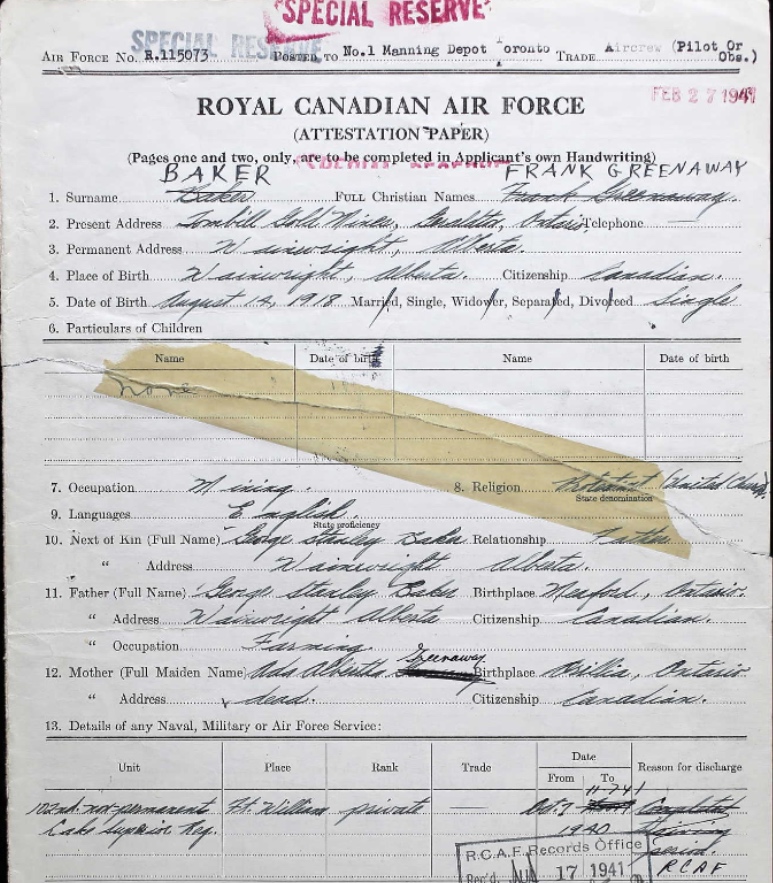 "SPECIAL RESERVE"
SPECIAL RESERVE
AIR FORCE No. R.115073 POSTED TO No.1 Manning Depot Toronto TRADE Aircrew (Pilot Or Obs.)
ROYAL CANADIAN AIR FORCE
FEB 27 1941
(ATTESTATION PAPER)
(Pages one and two, only, are to be completed in Applicant's own Handwriting)
BAKER FRANK GREENAWAY
1. Surname Baker FULL Christian Names Frank Greenaway.
2. Present Address Tombill Gold Mines, Geraldton, Ontario Telephone —
3. Permanent Address Wainwright, Alberta.
4. Place of Birth Wainwright, Alberta. Citizenship Canadian.
5. Date of Birth August 14, 1918 Married, Single, Widower, Separated, Divorced Single
6. Particulars of Children
Name Date of birth Name Date of birth
none
7. Occupation Mining. 8. Religion Protestant (United Church)
State denomination
9. Languages English.
State proficiency
10. Next of Kin (Full Name) George Stanley Baker Relationship Father
" Address Wainwright Alberta.
11. Father (Full Name) George Stanley Baker Birthplace Meaford, Ontario.
" Address Wainwright Alberta Citizenship Canadian.
" Occupation Farming.
12. Mother (Full Maiden Name) Ada Alberta Greenaway Birthplace Orillia, Ontario
" Address dead. Citizenship Canadian.
13. Details of any Naval, Military or Air Force Service:
Unit Place Rank Trade Date From To Reason for discharge
102nd. not-permanent Ft. William private — Oct. 7 11-7-41 Completed
Lake Superior Reg. 1940 training
period.
R.C.A.F. Records Office RCAF
Rec'd. 17 1941